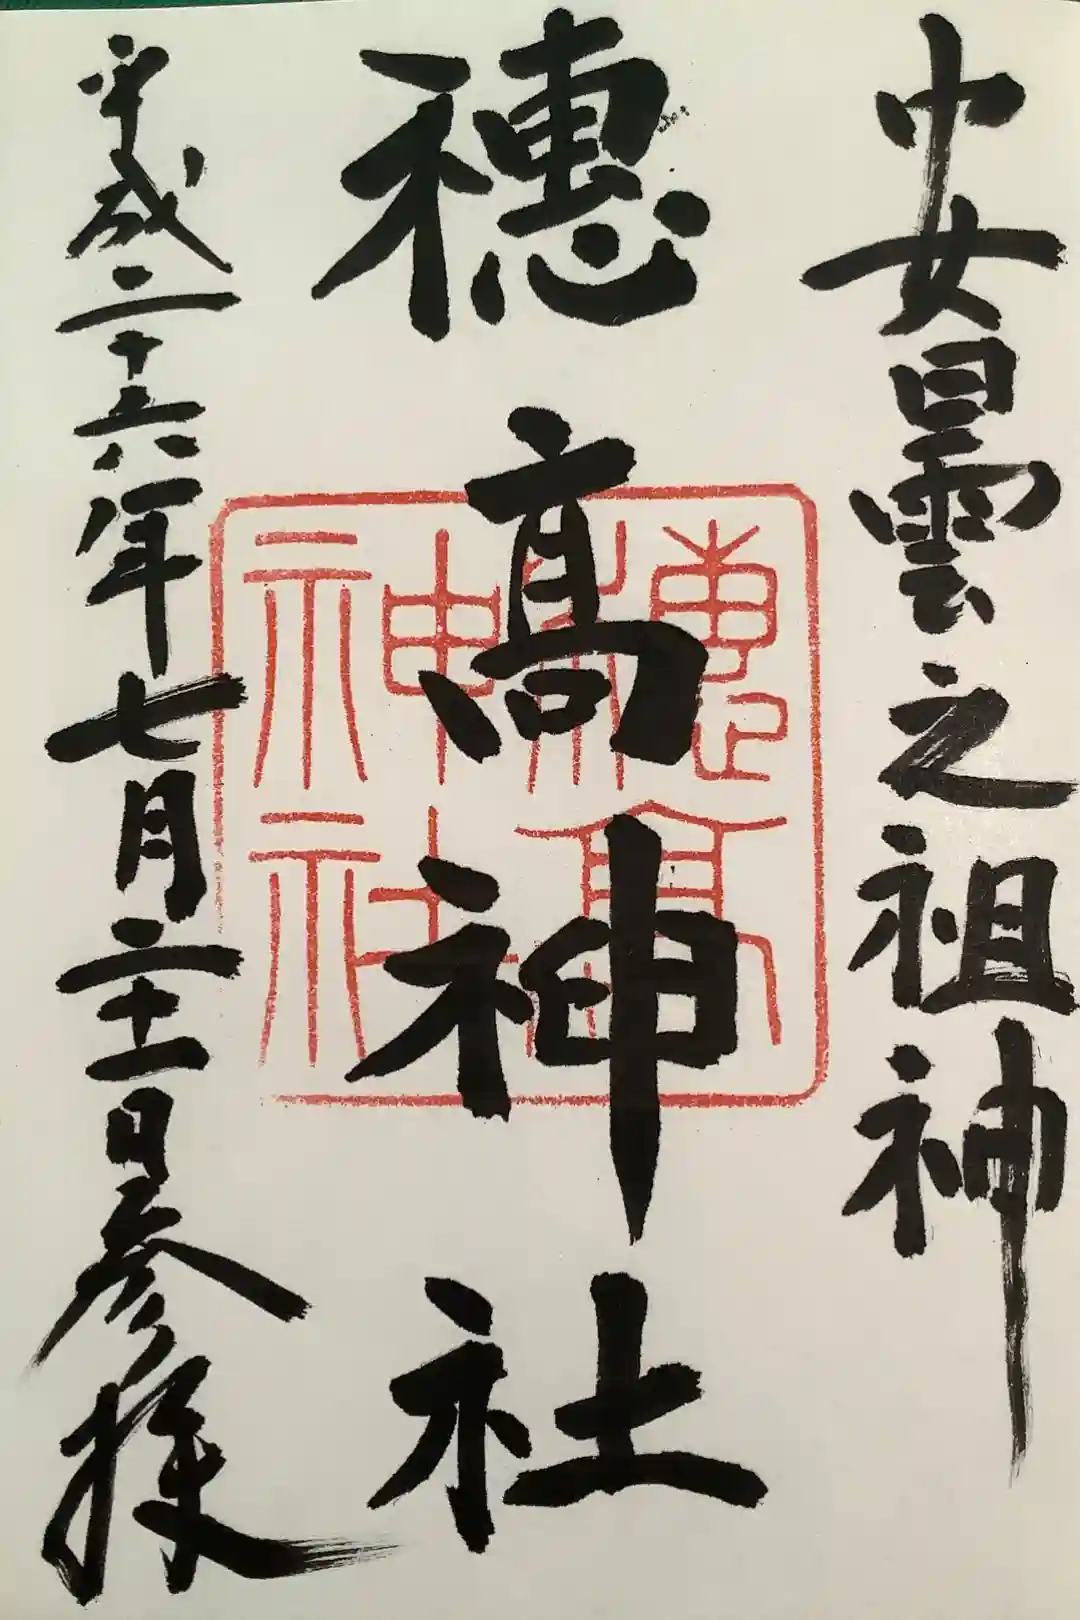 安曇之祖神
穂髙神社
平成二十六年七月二十一日参拝
穂高
神社